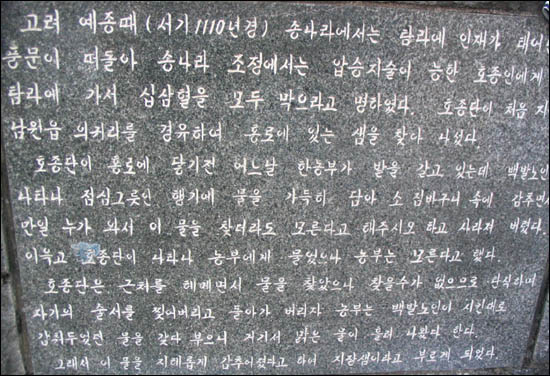 고려 예종때 (서기 1110년경) 송나라에서는 탐라에 인재가 태어
풍문이 떠돌아 송나라 조정에서는 압승지술이 능한 호종인에게
탐라에 가서 십삼혈을 모두 막으라고 명하였다. 호종단이 처음 지
남원읍 의커리를 경유하여 통로에 있는 샘을 찾다 나섰다.
호종단이 통로에 당기전 어느날 한농부가 밭을 갈고 있는데 백발노인
나타나 점심그릇인 행기에 물을 가득히 담아 소 짐바구니 속에 감추면서
만일 누가 와서 이 물을 찾더라도 모른다고 해주시오 하고 사라져 버렸다.
이윽고 호종단이 나타나 농부에게 물었으나 농부는 모른다고 했다.
호종단은 근처를 헤메면서 물을 찾았으나 찾을수가 없으므로 탄식하며
자기의 술서를 찢어버리고 돌아가 버리자 농부는 백발노인이 시킨대로
감춰두었던 물을 갖다 부으니 거기서 맑은 물이 흘러 나왔다 한다.
그래서 이 물을 지혜롭게 감추어졌다고 하여 지장샘이라고 부르게 되었다.